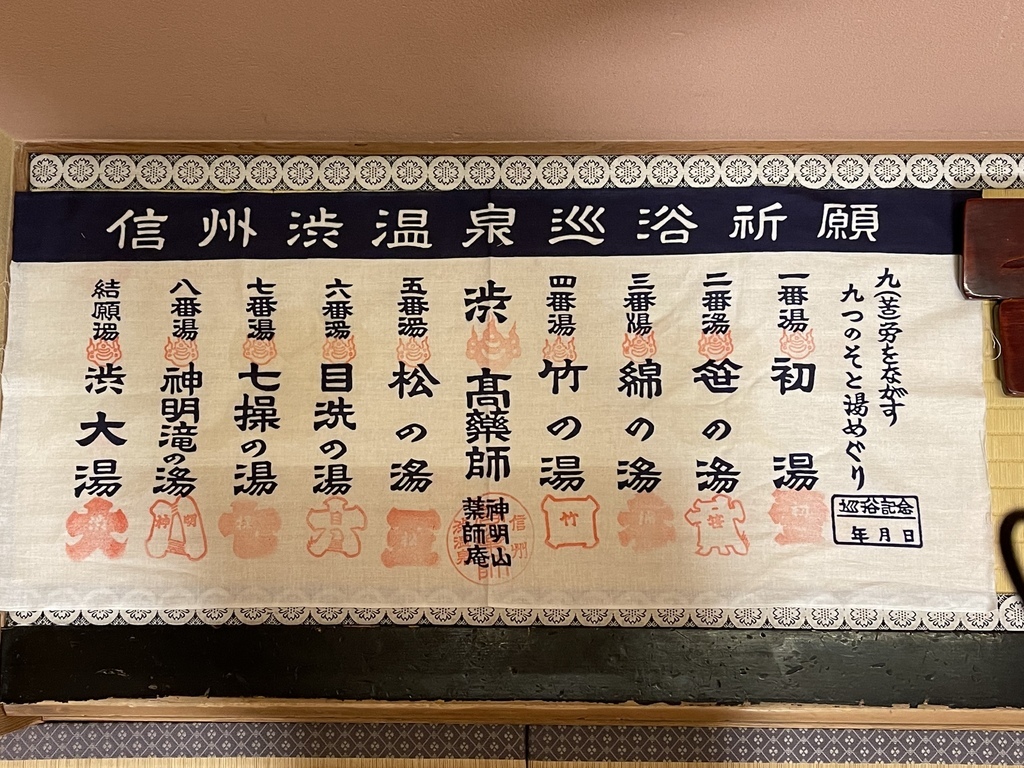 信州渋温泉巡浴祈願
九(苦)労をながす
九つのそと湯めぐり
巡浴記念
年月日
一番湯
初湯
初
二番湯
笹の湯
笹
三番湯
綿の湯
綿
四番湯
竹の湯
竹
渋高薬師
神明山
薬師庵
信州
渋温泉
五番湯
松の湯
松
六番湯
目洗の湯
七番湯
七操の湯
八番湯
神明滝の湯
神明
結願湯
渋大湯